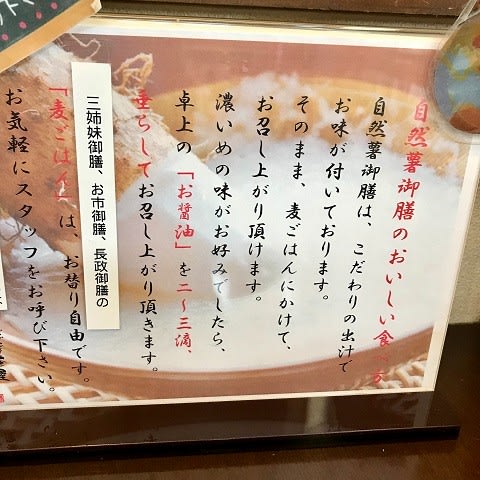 自然薯御膳のおいしい食べ方
自然薯御膳は、こだわりの出汁で
お味が付いております。
そのまま、麦ごはんにかけて、
お召し上がり頂けます。
濃いめの味がお好みでしたら、
卓上の「お醤油」を二〜三滴、
垂らしてお召し上がり頂きます。
三姉妹御膳、お市御膳、長政御膳の
「麦ごはん」は、お替り自由です。
お気軽にスタッフをお呼び下さい。